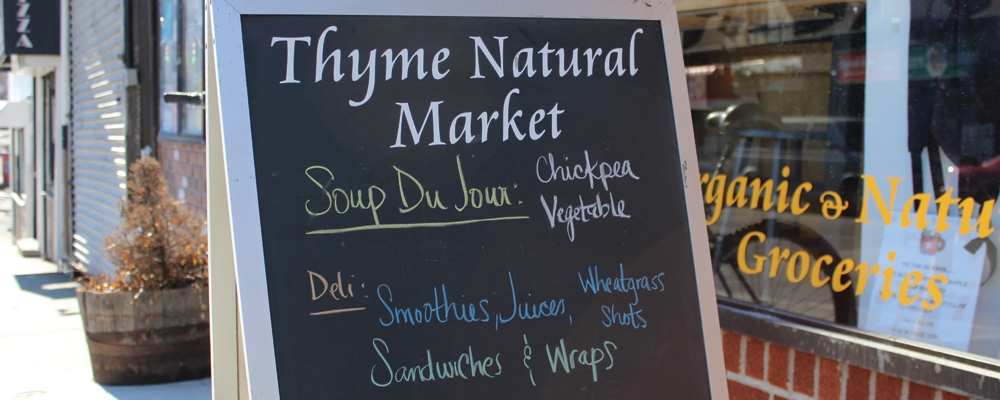 Thyme Natural
Market
Soup Du Jour: Chickpea
Vegetable
Deli: Smoothies, Juices, Wheatgrass
Shots
Sandwiches & Wraps
rganic & Natu
Groceries
ZZA